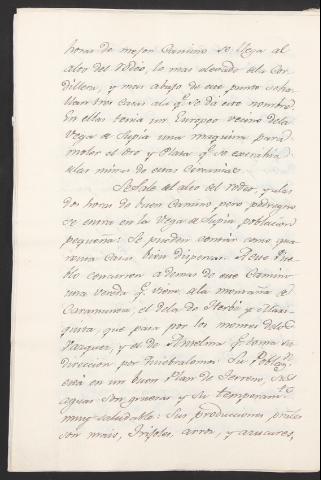 horas de mejor Camino se llega al
alto del rodeo, lo mas elevado de la Cor-
dillera, y mas abajo de este punto se ha-
llan tres Casas a la qe. se dá este nombre
En ellas tenia un Europeo vecino de la
Vega de Supia una maquina para
moler el Oro y Plata qe. se extrahia
de las minas de estas Cercanias.
Se Sale del alto del rodeo, y a las
dos horas de buen Camino, pero pedregoso
se entra en la Vega de Supia poblacion
pequeña: Se pueden contar como qua-
renta Casas bien dispersas. A este Pue-
blo concurren a demas de este Camino
una vereda qe. viene de la montaña de
Caramanta, el de la de Herbé y Mari-
quita, que pasa por los montes de
Vazquez, y el de Anselma qe. toma su
direccion por Quiebralomo. Su Poblacn.
está en un buen Plan de terreno, sus
aguas son gruesas y su temperamto.
muy saludable: Sus producciones prales.
son mais, frisoles, arroz, y azucares,